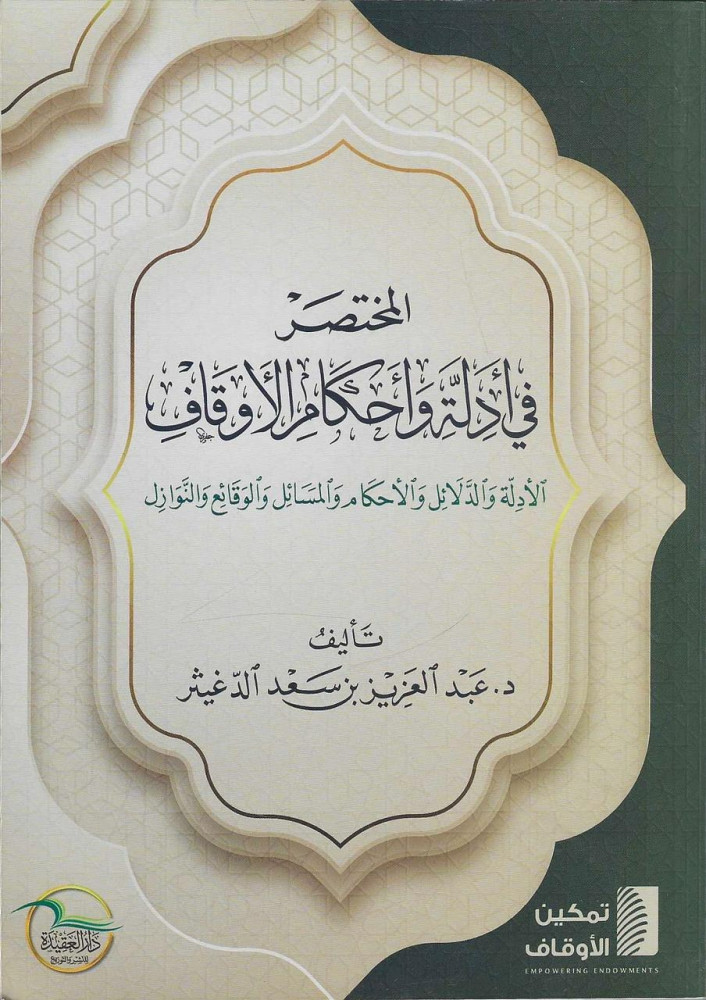 المختصر
في أدلة وأحكام الأوقاف
الأدلة والدلائل والأحكام والمسائل والوقائع والنوازل
تأليف
د. عبد العزيز بن سعد الدغيثر
دار العقيدة
للنشر والتوزيع
تمكين
الأوقاف
EMPOWERING ENDOWMENTS